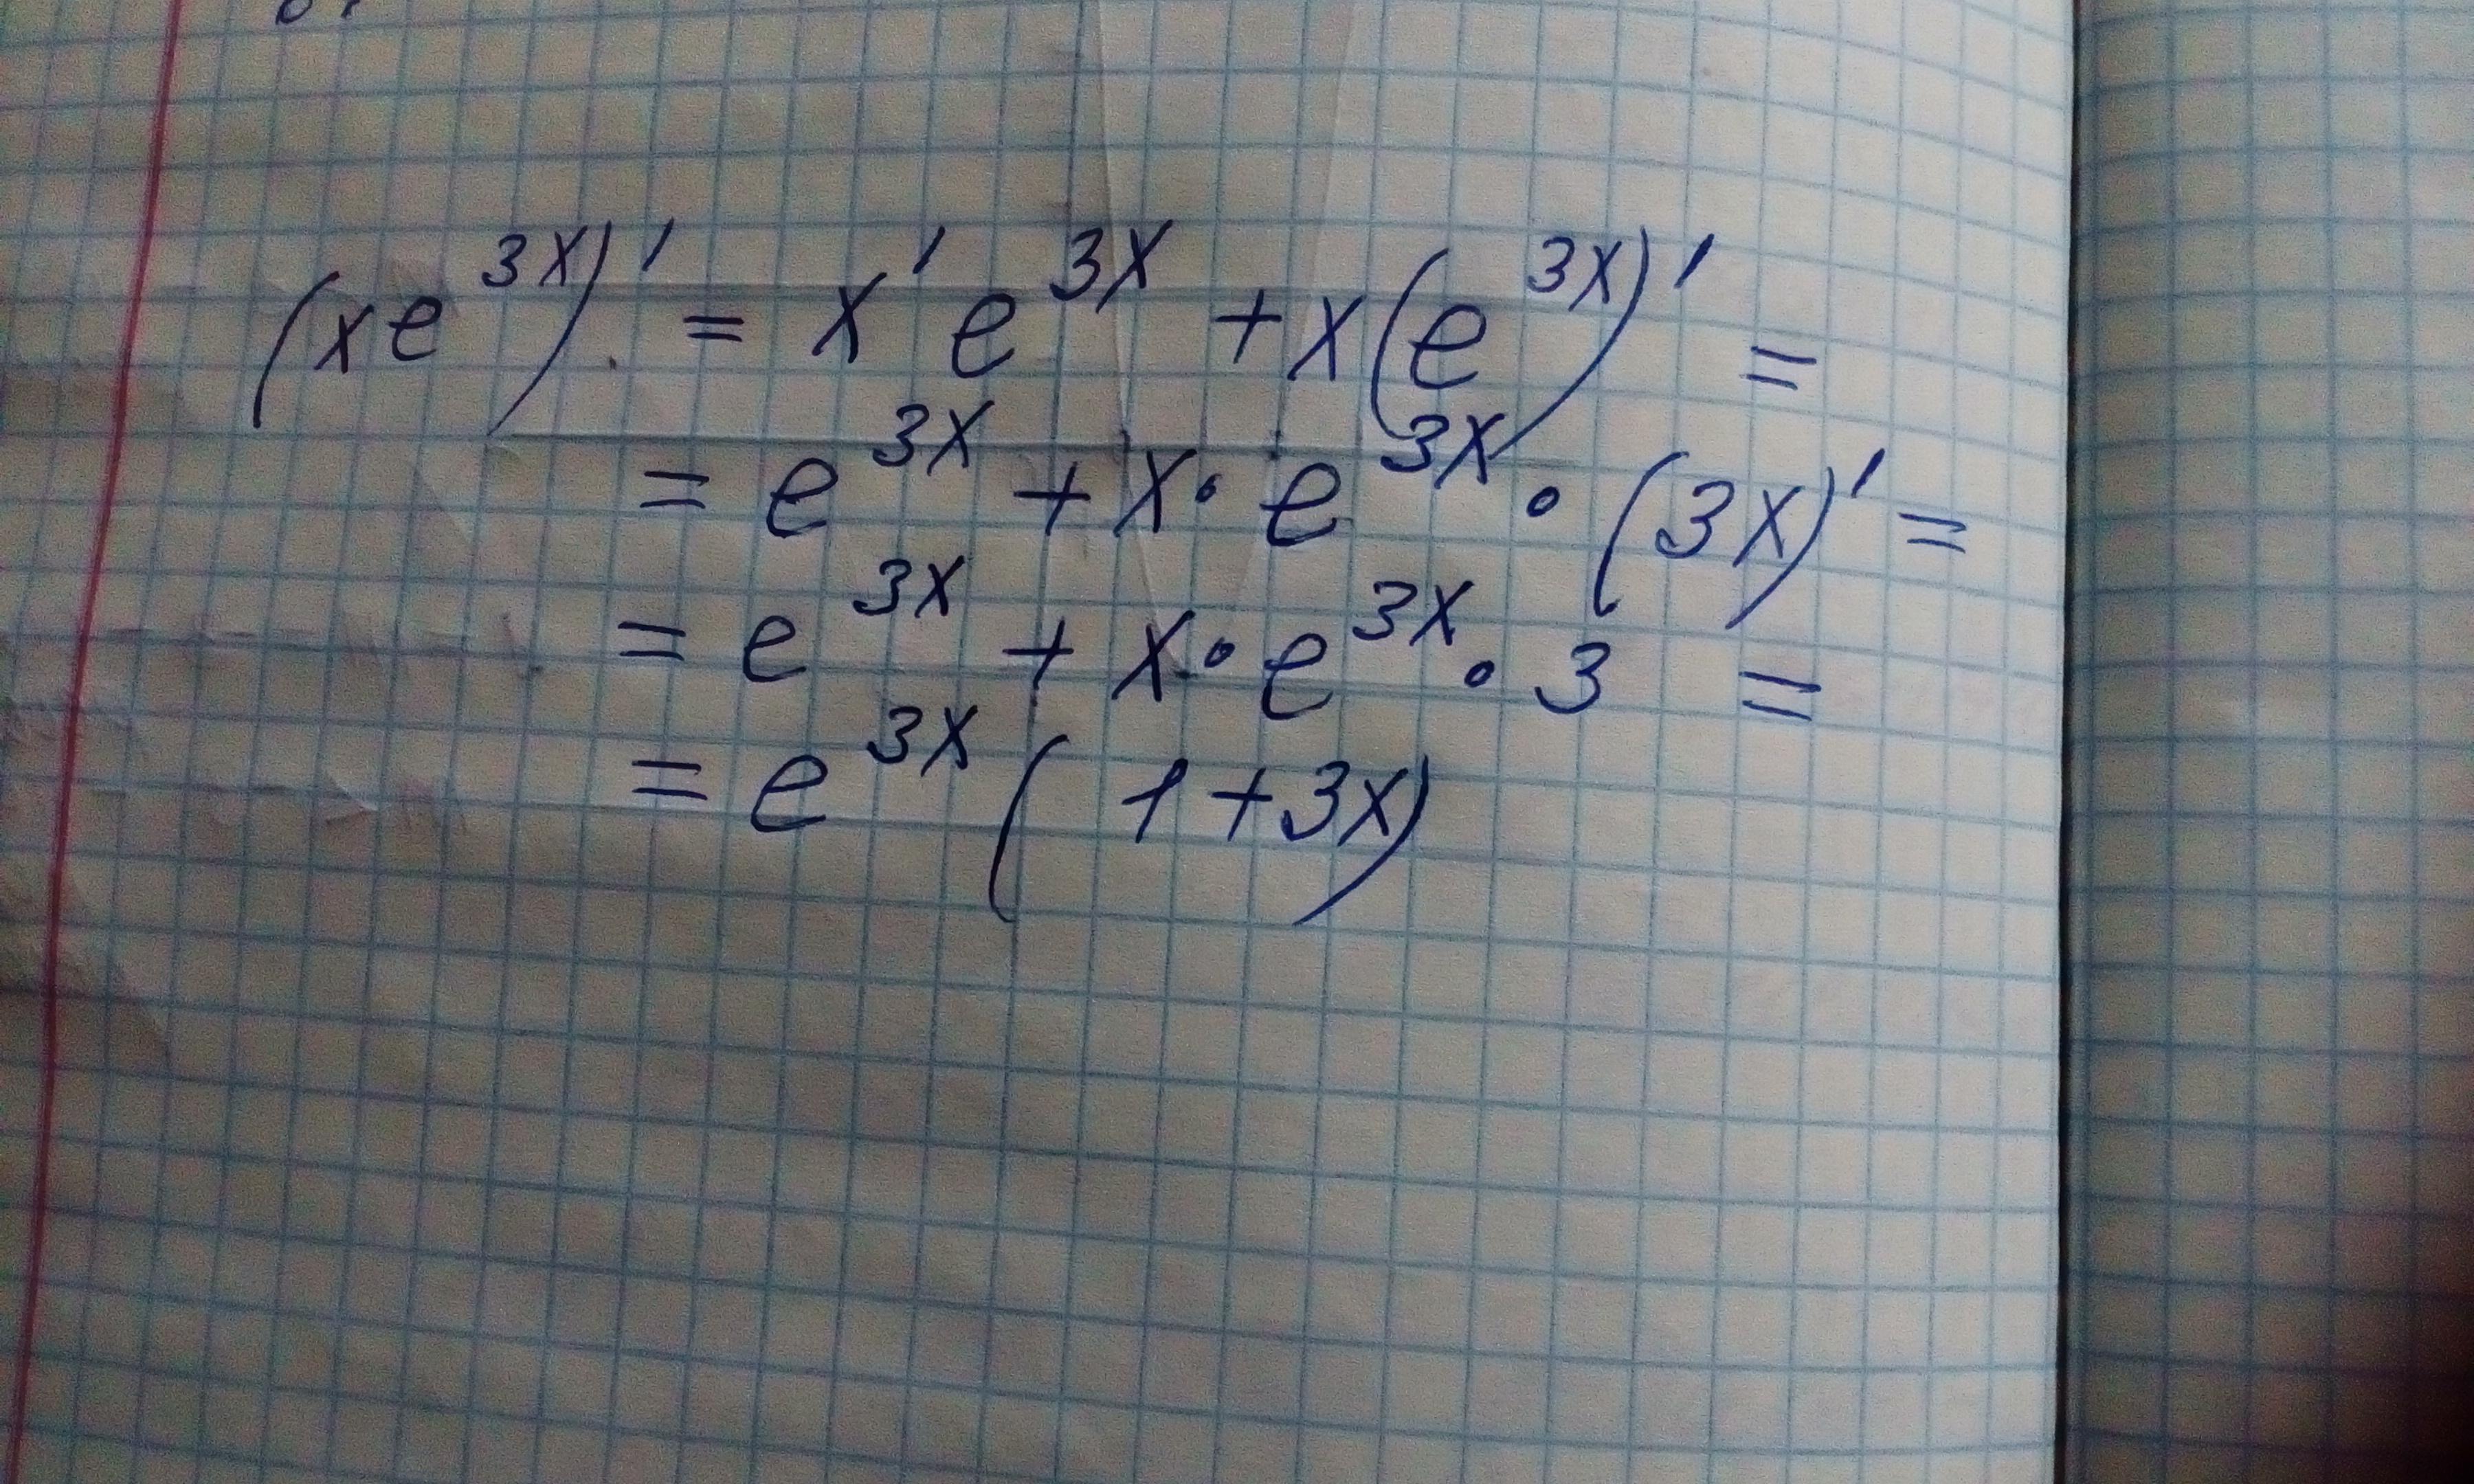 (xe^{3x})' = x'e^{3x} + x(e^{3x})' =
= e^{3x} + x · e^{3x} · (3x)' =
= e^{3x} + x · e^{3x} · 3 =
= e^{3x} (1 + 3x)